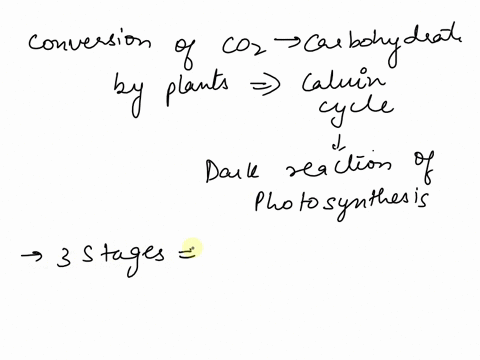 Conversion of CO2 → Carbohydrate
by plants ⇒ Calvin
cycle
↓
Dark reaction of
Photosynthesis
→ 3 Stages =